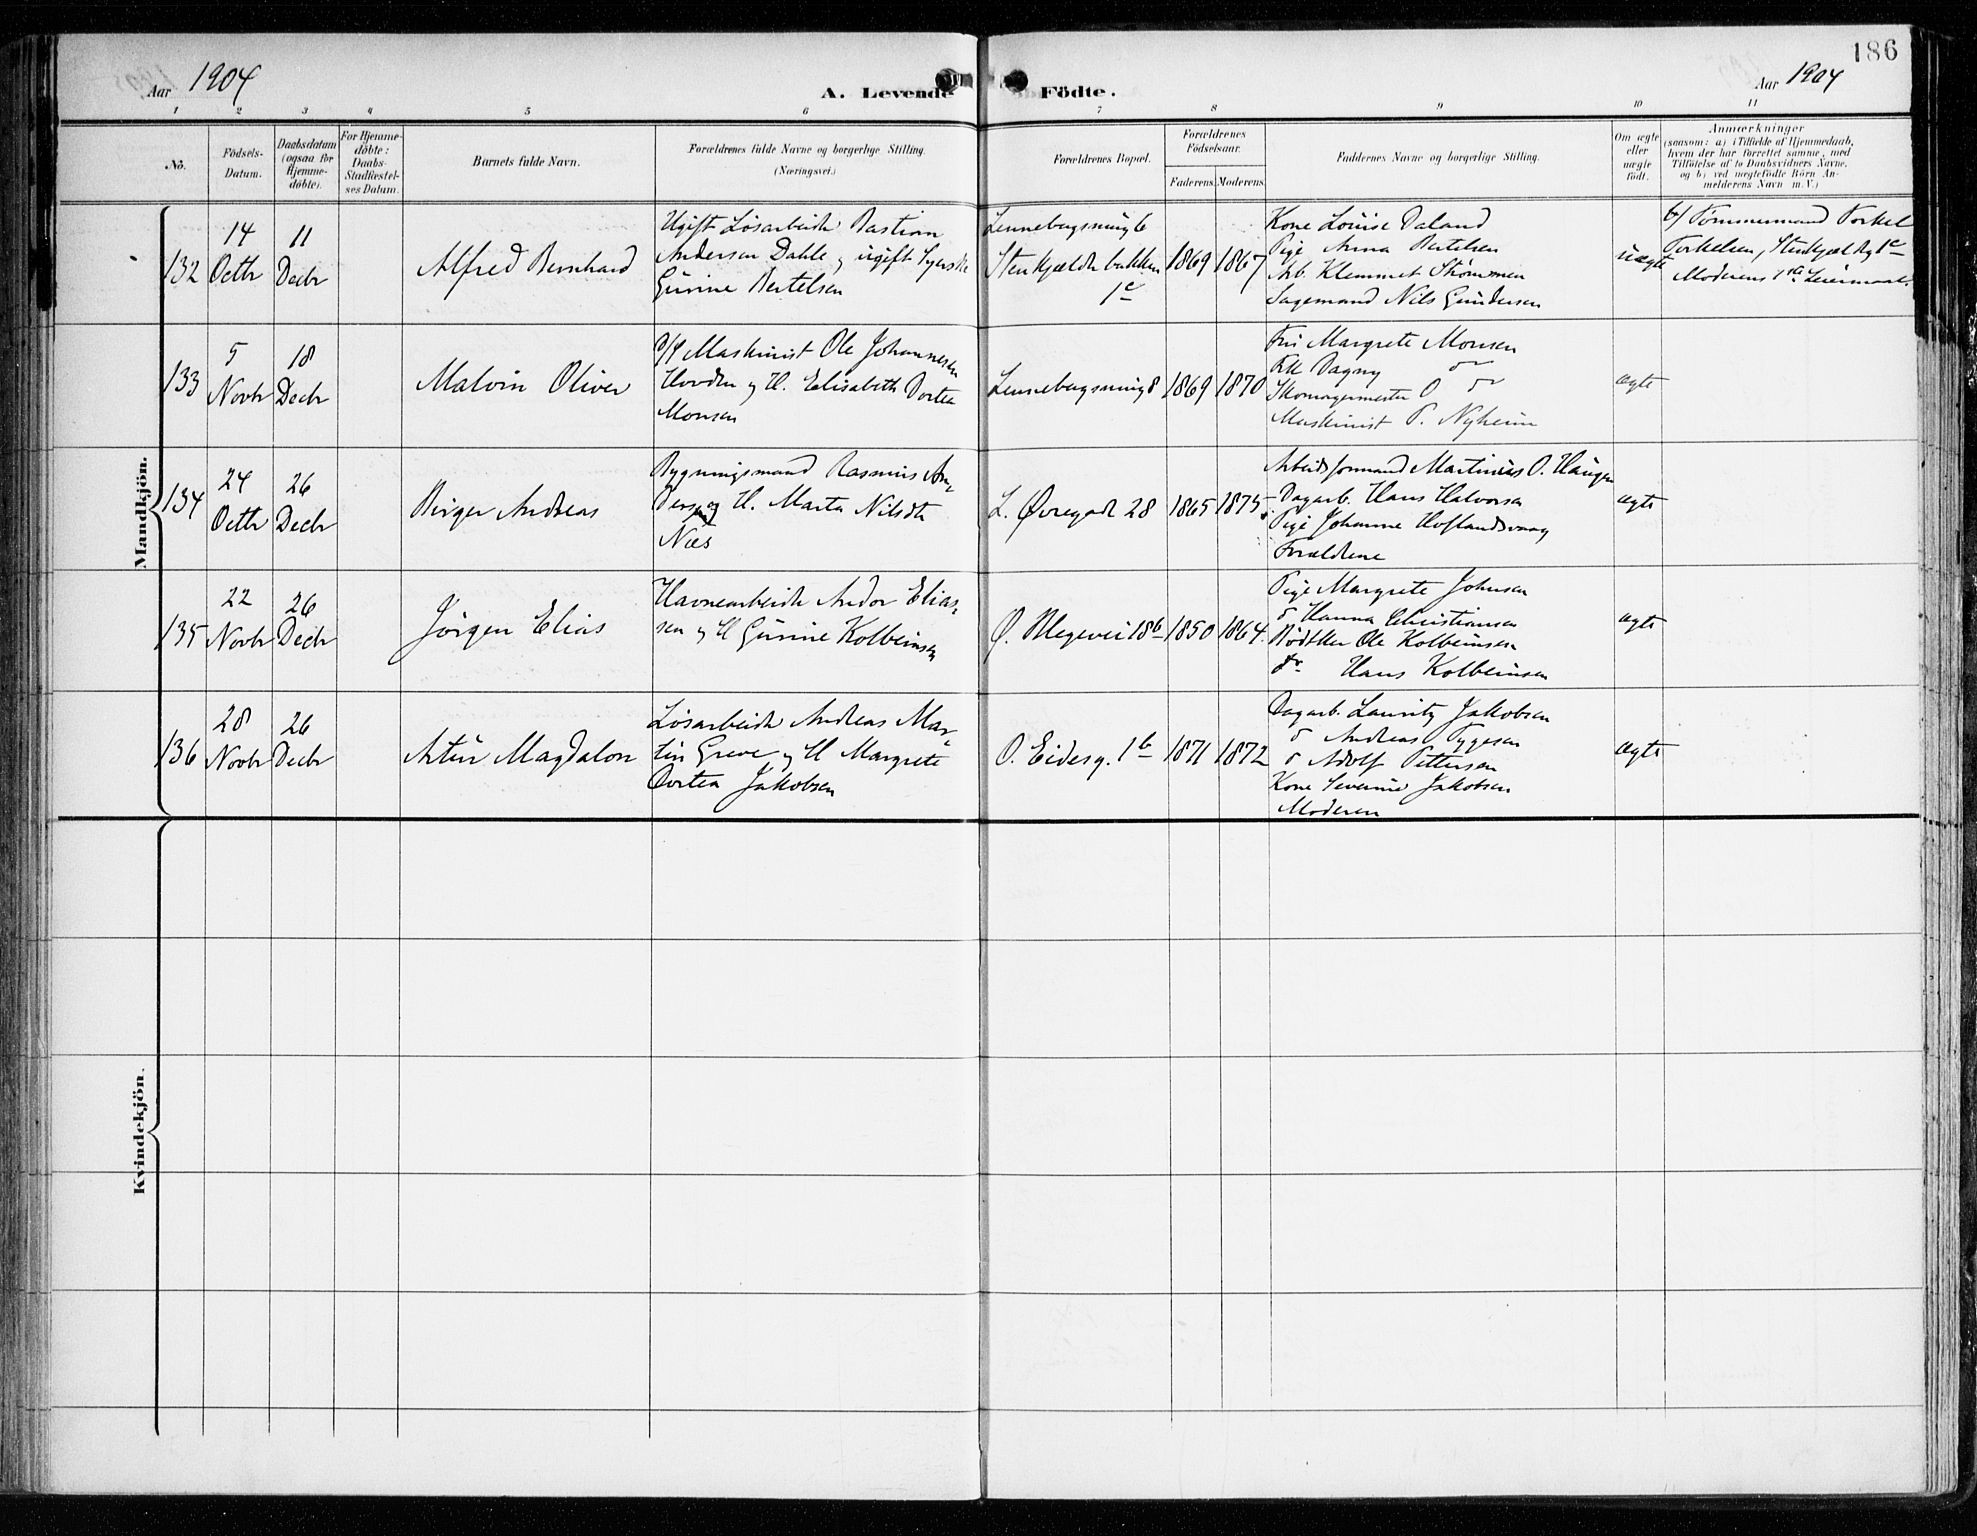 186
Aar 1904
A. Levende Födte.
Aar 1904
1 2 3 4 5 6 7 8 9 10 11
No.
Födsels-
Datum.
Daabsdatum
(ogsaa for
Hjemme-
döbte).
For Hjemme-
döbte:
Daabs-
Stadfæstel-
ses Datum.
Barnets fulde Navn.
Forældrenes fulde Navne og borgerlige Stilling.
(Næringsvei.)
Forældrenes Bopæl.
Forældrenes
Födselsaar.
Faderens.
Moderens.
Faddernes Navne og borgerlige Stilling.
Om ægte
eller
uægte
født.
Anmærkninger
(saasom: a) i Tilfælde af Hjemmedaab,
hvem der har forrettet samme, med
Tilföielse af to Daabsvidners Navne,
og b) ved uægtefödte Börn An-
melderens Navn m. V.)
Mandkjön.
132
14
Octbr
11
Decbr
Alfred Bernhard
Ugift Løsarbeider Bastian
Andersen Dahle og ugift Syerske
Gurine Bertelsen
Stenkjælderbakken
1c
1869
1867
Kone Louise Daland
Pige Anna Bertelsen
Arb. Klemmet Strømmen
Sagemand Nils Gundersen
uægte
b/ Tømmermand Torkel
Torkelsen, Stenkjælderg 1c
Moderens 1ste Leiermaal.
133
5
Novbr
18
Decbr
Malvin Oliver
Maskinist Ole Johannesen
Hovden og H. Elisabeth Dortea
Monsen
1869
1870
Fru Margrete Monsen
Frk Dagny do
Skomagermester O do
Maskinist P. Nyheim
ægte
134
24
Octbr
26
Decbr
Birger Andreas
Bygningsmand Rasmus An-
og H. Marta Nilsdtr
Næs
L. Øvregade 28
1865
1875
Arbeidsformand Martinius O. Haugen
Dagarb. Hans Halvorsen
Pige Johanne Hoflandsvaag
Forældrene
ægte
135
22
Novbr
26
Decbr
Jörgen Elias
Havnearbeider Andor Elias-
sen og H Gurine Kolbeinsen
Ø. Blegevei 18b
1850
1864
Pige Margrete Johnsen
d Hanna Christiansen
Bødtker Ole Kolbeinsen
do Hans Kolbeinsen
ægte
136
28
Novbr
26
Decbr
Artur Magdalon
Løsarbeider Andreas Mar-
tin Greve og H Margrete
Dortea Jakobsen
O. Eidesg. 1b
1871
1872
Dagarb. Lauritz Jakobsen
d Andreas Tygesen
d Adolf Pettersen
Kone Severine Jakobsen
Moderen
ægte
Kvindekjön.